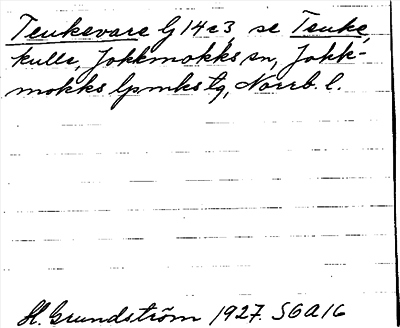 Teukevare G14c3 se Teuke,
kulle, Jokkmokks sn, Jokk-
mokks lpmks tg, Norrb. l.
H. Grundström 1927. SOA16